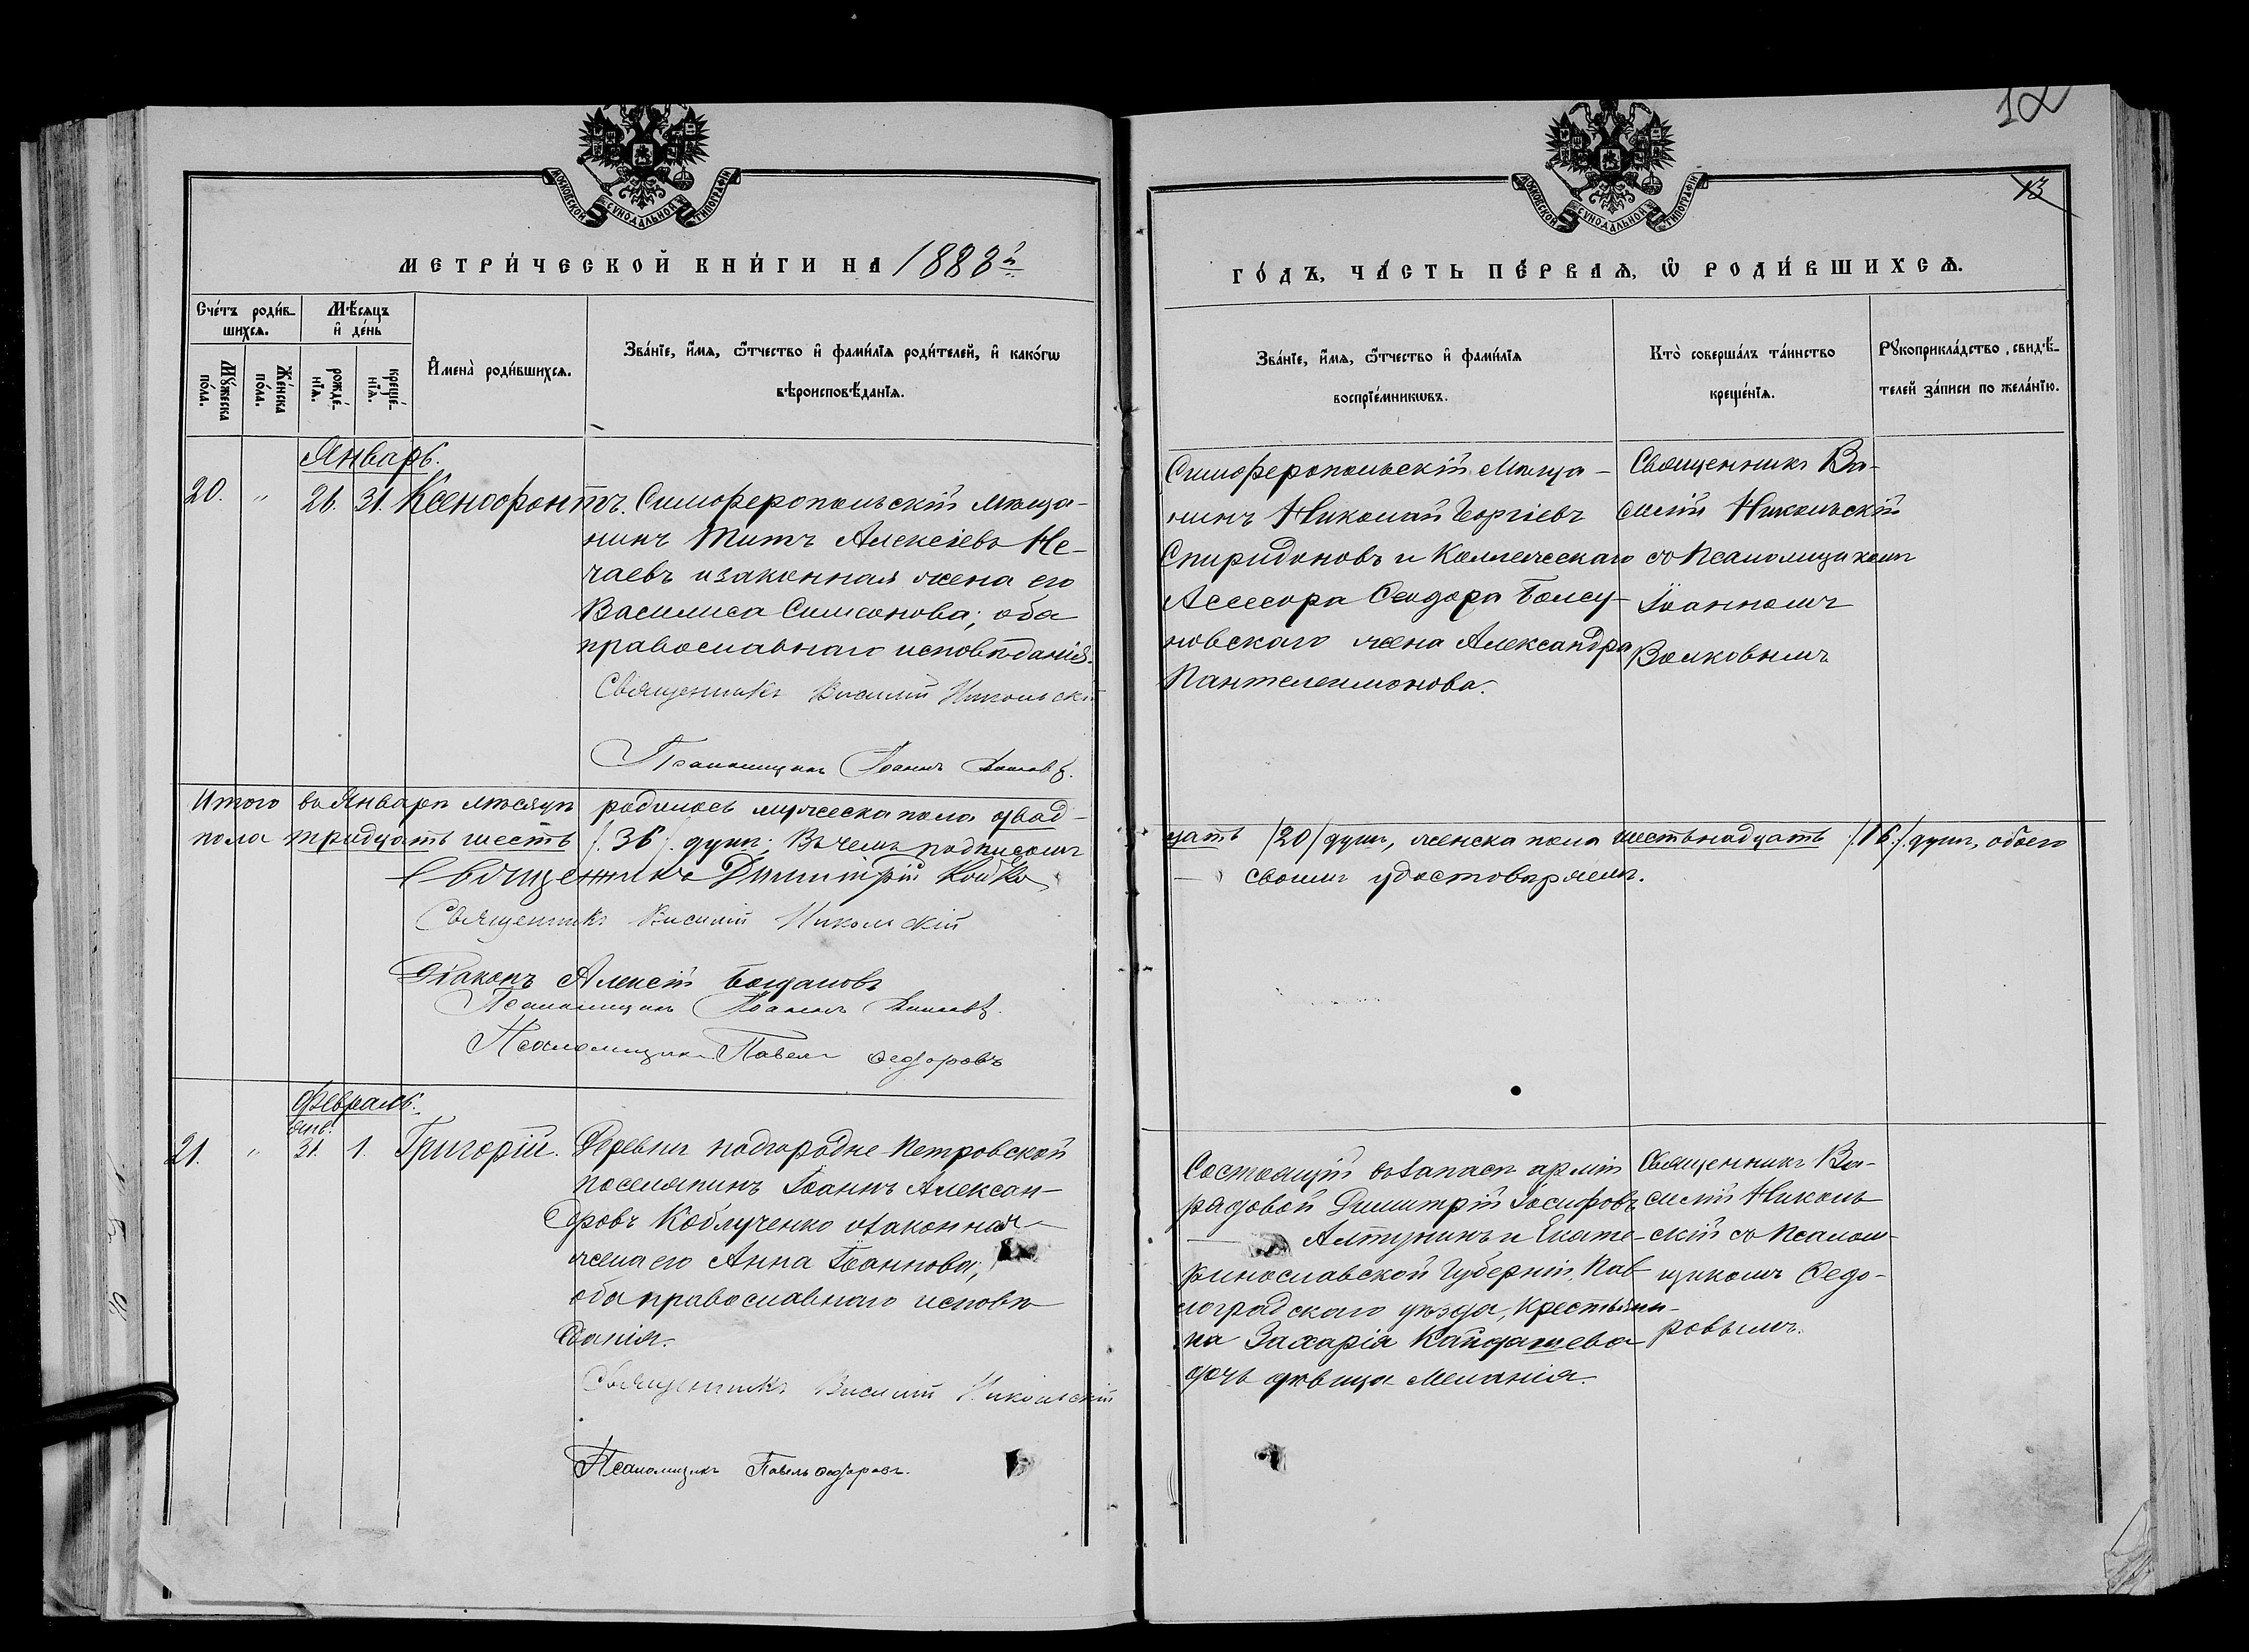 12
13
МОСКОВСКОЙ СѴНОДАЛЬНОЙ ТИПОГРАФІИ
МОСКОВСКОЙ СѴНОДАЛЬНОЙ ТИПОГРАФІИ
МЕТРИ́ЧЕСКОЙ КНИ́ГИ НА 1888 г.
ГО́ДЪ, ЧА́СТЬ ПЕ́РВАѦ, Ѡ҆ РОДИ́ВШИХСѦ.
Сче́тъ роди́вшихсѧ.
Мѣ́сѧцъ и҆ де́нь
Мꙋ́жеска по́ла.
Же́нска по́ла.
рожде́нїѧ.
креще́нїѧ.
И҆мена̀ роди́вшихсѧ.
Зва́нїе, и҆́мѧ, ѻ҆́тчество и҆ фами́лїѧ роди́телей, и҆ како́гѡ
вѣроисповѣ́данїѧ.
Зва́нїе, и҆́мѧ, ѻ҆́тчество и҆ фами́лїѧ
воспрїе́мникѡвъ.
Кто̀ соверша́лъ та́инство
креще́нїѧ.
Рꙋкоприкла́дство свидѣ́телей за́писи по жела́нїю.
Январь.
20. „ 26. 31. Ксенофонтъ. Симферопольскій мѣща-
нинъ Титъ Алексіевъ Не-
чаевъ и законная жена его
Василиса Симонова; оба
православнаго исповѣданія.
Священникъ Василій Никольскій
Псаломщикъ Іоаннъ Волковъ.
Симферопольскій Мѣща-
нинъ Николай Георгіевъ
Спиридоновъ и Коллежскаго
Асессора Ѳеодора Болсу-
новскаго жена Александра
Пантелеимонова.
Священникъ Ва-
силій Никольскій
со Псаломщикомъ
Іоанномъ
Волковымъ
Итого въ Январѣ мѣсяцѣ родилось мужеска пола двад-
цать /20/ душъ, женска пола шестьнадцать /16./ душъ, обоего
пола тридцать шесть /.36/. душъ; въ чемъ подписомъ
своимъ удостовѣряемъ.
Священникъ Димитрій Койко
Священникъ Василій Никольскій
Діаконъ Алексій Богдановъ
Псаломщикъ Іоаннъ Волковъ.
Псаломщикъ Павелъ Ѳедоровъ
Февраль.
Янв.
21. „ 31. 1. Григорій. Деревни подгородне-Петровской
поселянинъ Іоаннъ Алексан-
дровъ Коблученко и законная
жена его Анна Іоаннова;
оба православнаго исповѣ-
данія.
Священникъ Василій Никольскій
Псаломщикъ Павелъ Ѳедоровъ.
Состоящій въ запасѣ арміи
рядовой Димитрій Іосифовъ
Алтунинъ и Екате-
ринославской Губерніи, Пав-
лоградскаго уѣзда, Крестьяни-
на Захарія Кайдашева
дочь дѣвица Меланія.
Священникъ Ва-
силій Николь-
скій съ Псалом-
щикомъ Ѳедо-
ровымъ.